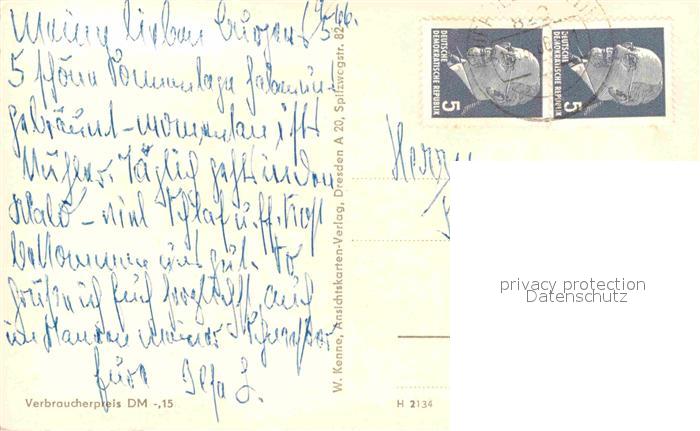 Meine lieben
5 schöne Sonnentage haben uns
gebräunt – momentan ist's
kühler. Täglich geht's in den
Wald – viel Schlaf u.
bekommen uns gut. So
grüße ich Euch herzlichst, auch
im Namen meiner Schwester
Eure Ilse L.
Verbraucherpreis DM -,15
W. Kenne, Ansichtskarten-Verlag, Dresden A 20, Spitzwegstr. 82
H 2134
DEUTSCHE
DEMOKRATISCHE REPUBLIK
5
DEUTSCHE
DEMOKRATISCHE REPUBLIK
5
privacy protection
Datenschutz